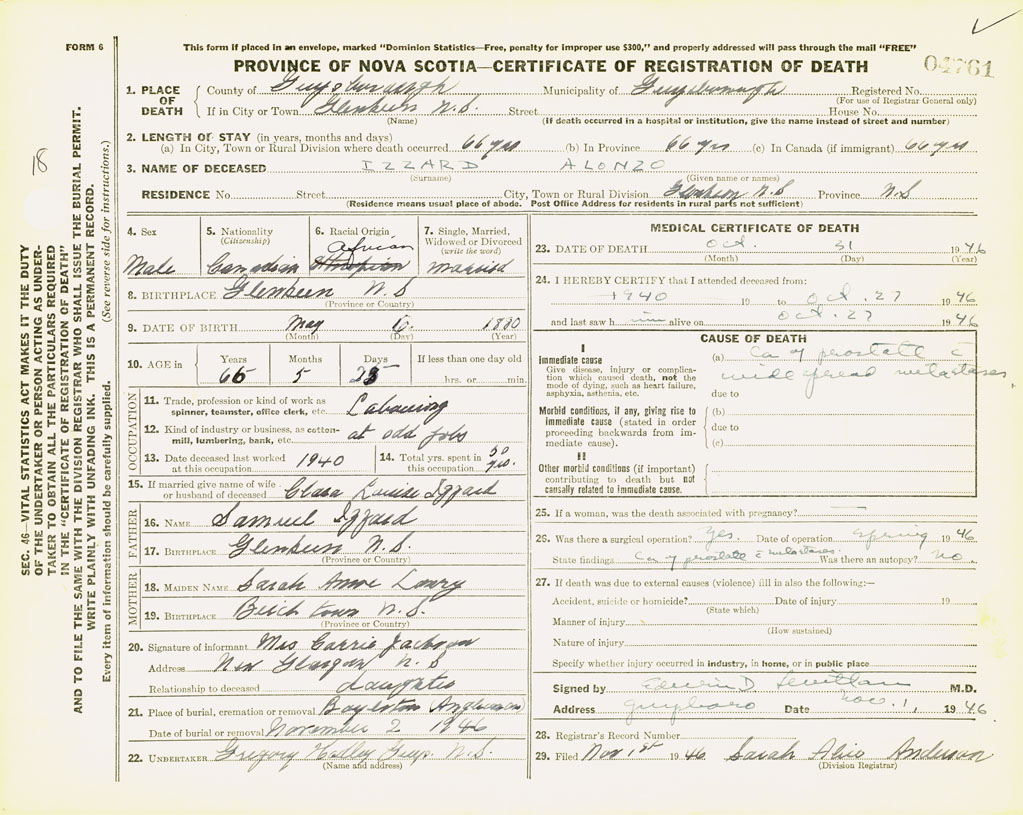 FORM 6
This form if placed in an envelope, marked "Dominion Statistics—Free, penalty for improper use $300," and properly addressed will pass through the mail "FREE"
PROVINCE OF NOVA SCOTIA—CERTIFICATE OF REGISTRATION OF DEATH
04761
18
SEC. 46—VITAL STATISTICS ACT MAKES IT THE DUTY
OF THE UNDERTAKER OR PERSON ACTING AS UNDER-
TAKER TO OBTAIN ALL THE PARTICULARS REQUIRED
IN THE "CERTIFICATE OF REGISTRATION OF DEATH"
AND TO FILE THE SAME WITH THE DIVISION REGISTRAR WHO SHALL ISSUE THE BURIAL PERMIT.
WRITE PLAINLY WITH UNFADING INK. THIS IS A PERMANENT RECORD.
Every item of information should be carefully supplied. (See reverse side for instructions.)
1. PLACE OF DEATH
County of Guysborough Municipality of Guysborough Registered No.
(For use of Registrar General only)
If in City or Town Glenkeen N.S. Street House No.
(Name) (If death occurred in a hospital or institution, give the name instead of street and number)
2. LENGTH OF STAY (in years, months and days)
(a) In City, Town or Rural Division where death occurred 66 yrs (b) In Province 66 yrs (c) In Canada (if immigrant) 66 yrs
3. NAME OF DECEASED IZZARD ALONZO
(Surname) (Given name or names)
RESIDENCE No. Street City, Town or Rural Division Glenkeen N.S Province N.S
(Residence means usual place of abode. Post Office Address for residents in rural parts not sufficient)
4. Sex
Male
5. Nationality
(Citizenship)
Canadian
6. Racial Origin
African
7. Single, Married,
Widowed or Divorced
(write the word)
Married
8. BIRTHPLACE Glenkeen N.S
(Province or Country)
9. DATE OF BIRTH May 6 1880
(Month) (Day) (Year)
10. AGE in Years Months Days If less than one day old
66 5 25 hrs. or min.
OCCUPATION
11. Trade, profession or kind of work as
spinner, teamster, office clerk, etc. Labouring
12. Kind of industry or business, as cotton-
mill, lumbering, bank, etc. at odd jobs
13. Date deceased last worked
at this occupation 1940
14. Total yrs. spent in
this occupation 50 yrs.
15. If married give name of wife
or husband of deceased Clara Louise Izzard
FATHER
16. NAME Samuel Izzard
17. BIRTHPLACE Glenkeen N.S.
(Province or Country)
MOTHER
18. MAIDEN NAME Sarah Anne Lowry
19. BIRTHPLACE Birch town N.S.
(Province or Country)
20. Signature of informant Mrs Carrie Jackson
Address New Glasgow N.S
Relationship to deceased daughter
21. Place of burial, cremation or removal Boylston
Date of burial or removal November 2 1946
22. UNDERTAKER Gregory Guys. N.S.
(Name and address)
MEDICAL CERTIFICATE OF DEATH
23. DATE OF DEATH Oct. 31 1946
(Month) (Day) (Year)
24. I HEREBY CERTIFY that I attended deceased from:
1940 19 to Oct. 27 1946
and last saw h im alive on Oct. 27 1946
CAUSE OF DEATH
I
Immediate cause
Give disease, injury or complica-
tion which caused death, not the
mode of dying, such as heart failure,
asphyxia, asthenia, etc.
(a) Ca of prostate c
wide spread metastases
due to
Morbid conditions, if any, giving rise to
immediate cause (stated in order
proceeding backwards from im-
mediate cause).
(b)
due to
(c)
II
Other morbid conditions (if important)
contributing to death but not
causally related to immediate cause.
25. If a woman, was the death associated with pregnancy?
26. Was there a surgical operation? Yes. Date of operation Spring 1946
State findings Ca of prostate c metastases. Was there an autopsy? No.
27. If death was due to external causes (violence) fill in also the following:—
Accident, suicide or homicide? Date of injury 19
(State which)
Manner of injury
(How sustained)
Nature of injury
Specify whether injury occurred in industry, in home, or in public place
Signed by Edwin D M.D.
Address Guysboro Date Nov. 1, 1946
28. Registrar's Record Number
29. Filed Nov 1st 1946 Sarah Alice Anderson
(Division Registrar)